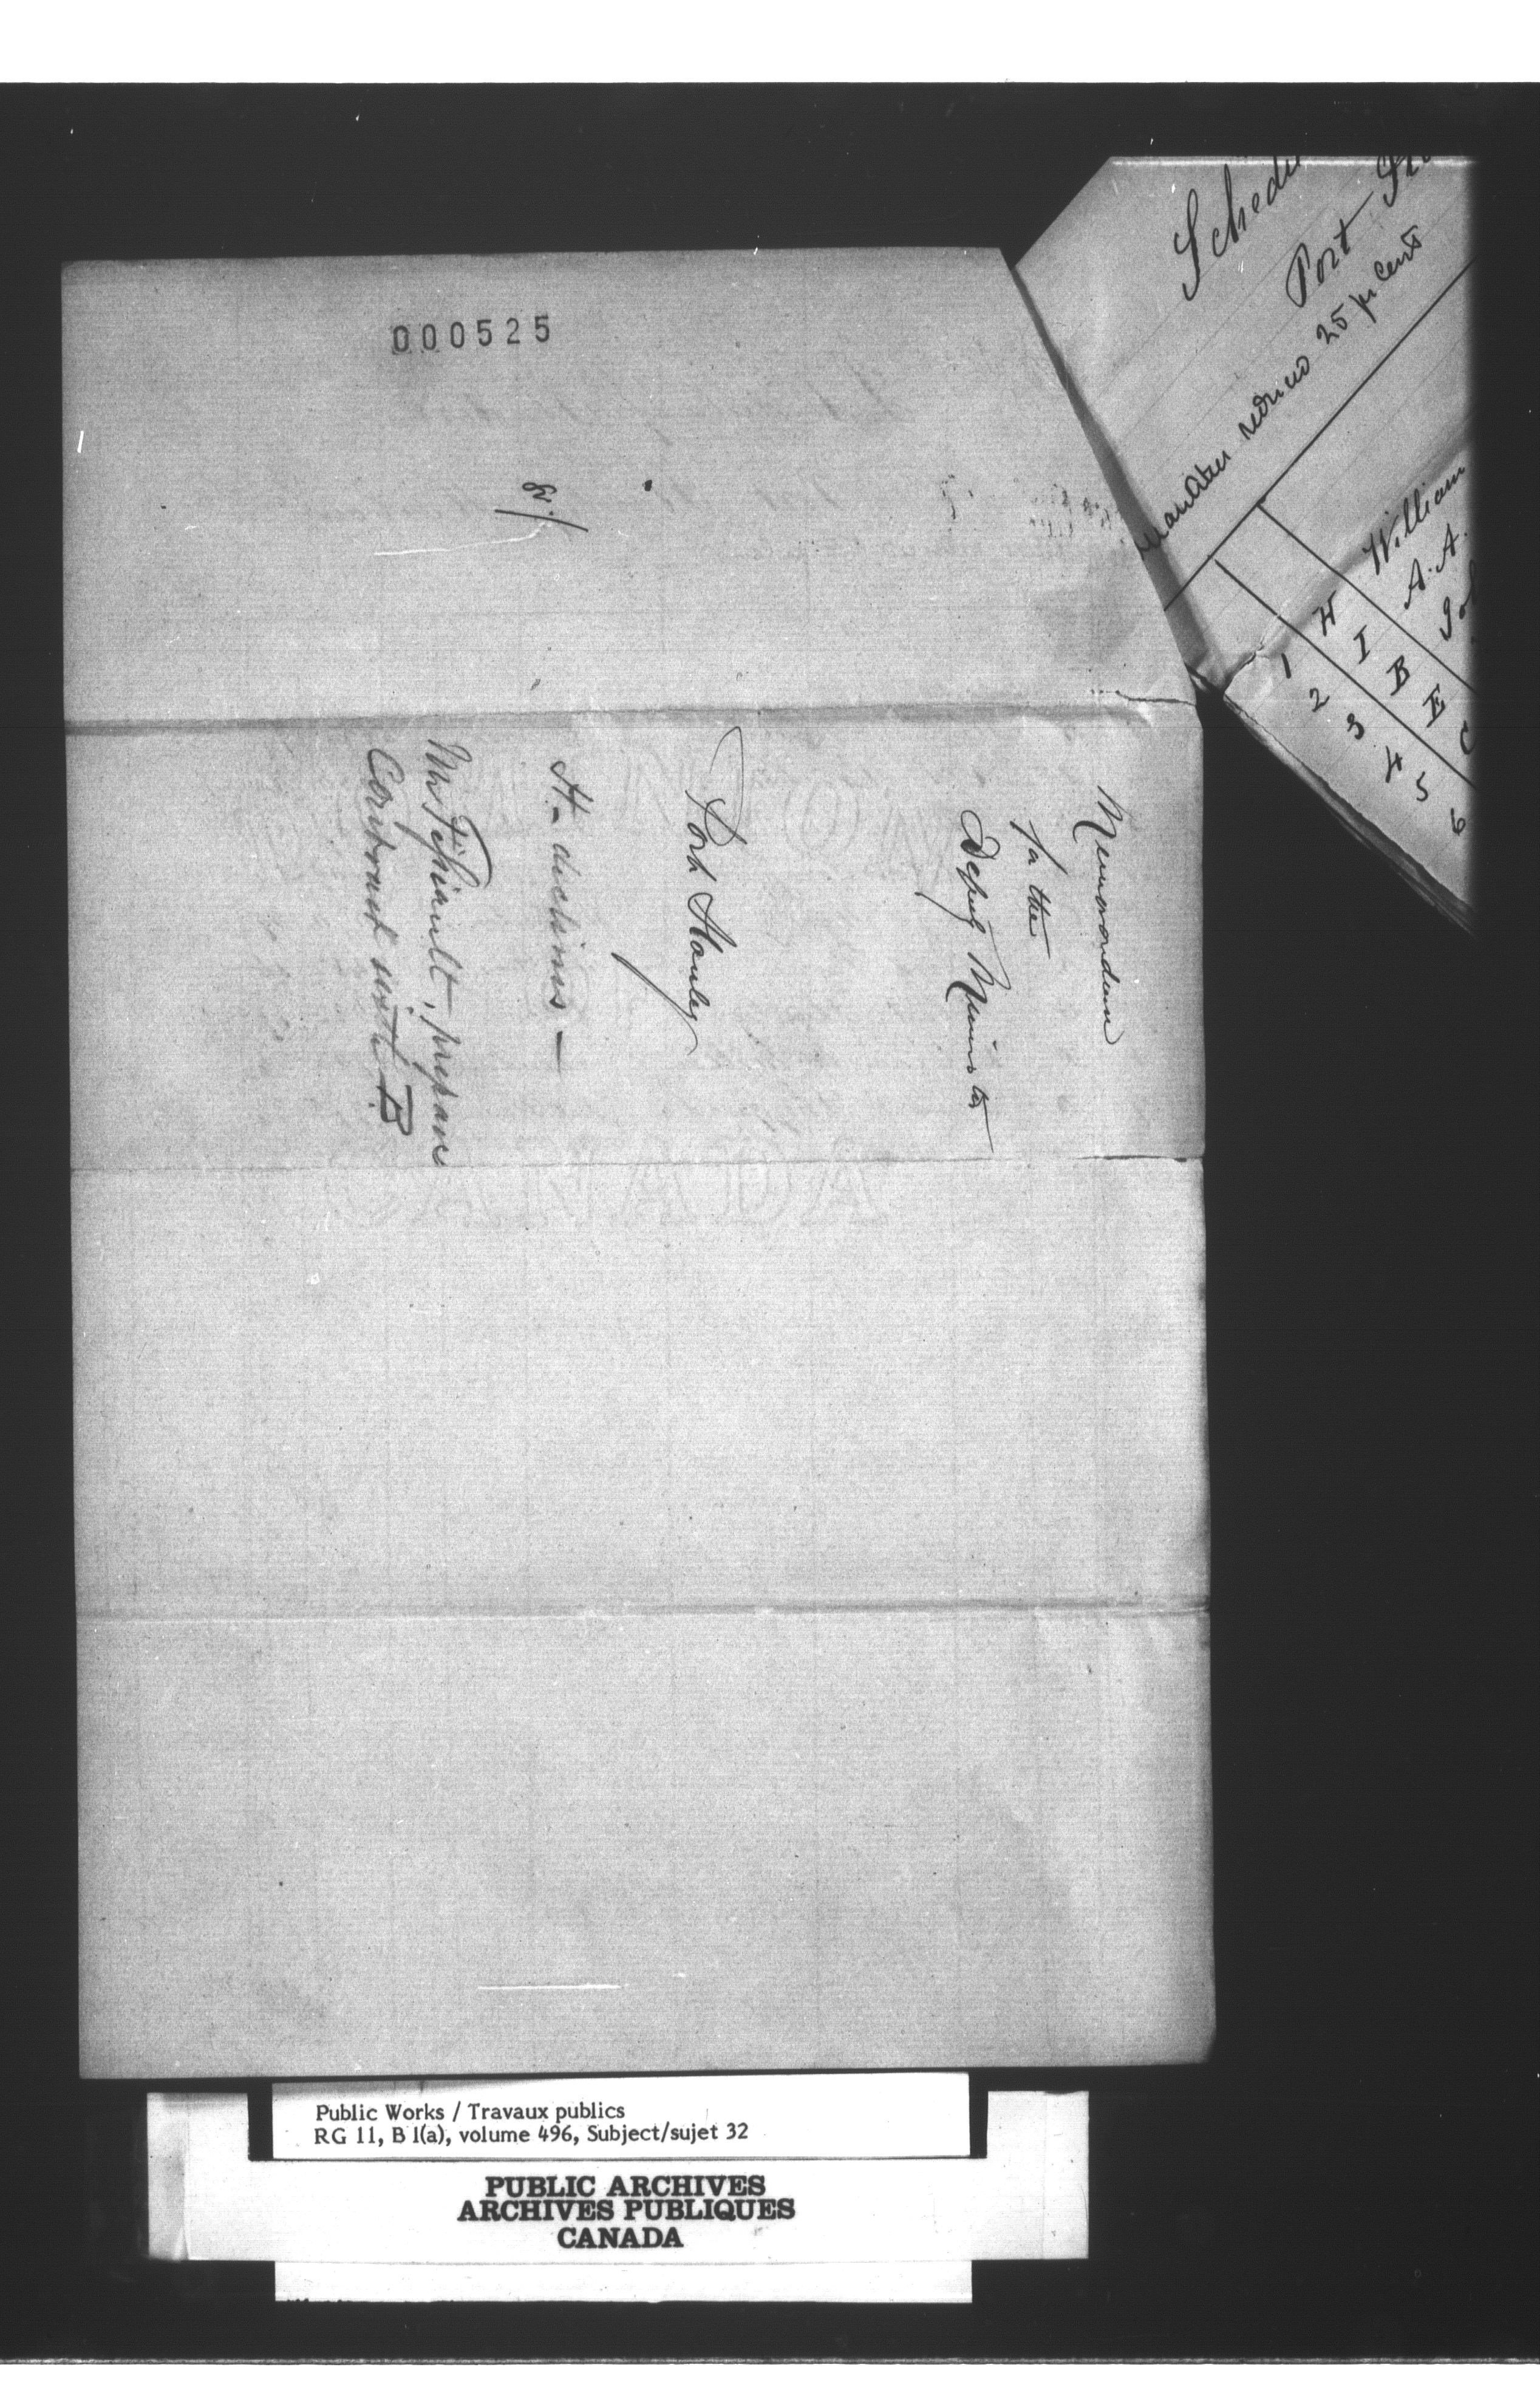 000525
Memorandum
for the
Deputy Minister
Port Stanley
H. declines —
Mr Fissiault, prepare
Contract with B
Schedu
Port Sta
reduced 25 pr cents
1 H William
2 I A. A.
3 B Joh
4 E
5 C
6
Public Works / Travaux publics
RG 11, B 1(a), volume 496, Subject/sujet 32
PUBLIC ARCHIVES
ARCHIVES PUBLIQUES
CANADA